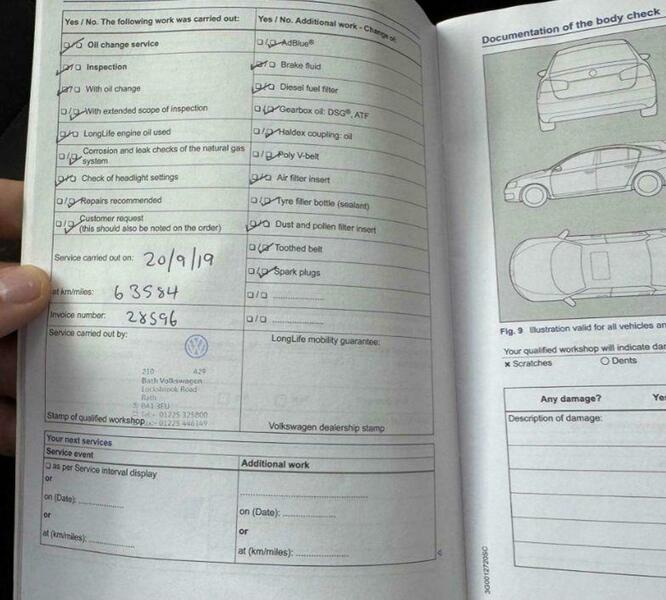 Yes / No. The following work was carried out:
☐/☐ Oil change service
☐/☐ Inspection
☐/☐ With oil change
☐/☐ With extended scope of inspection
☐/☐ LongLife engine oil used
☐/☐ Corrosion and leak checks of the natural gas
system
☐/☐ Check of headlight settings
☐/☐ Repairs recommended
☐/☐ Customer request
(this should also be noted on the order)
Service carried out on: 20/9/19
at km/miles: 63584
Invoice number: 28596
Service carried out by:
210 429
Bath Volkswagen
Locksbrook Road
Bath
BA1 3EU
Tel:- 01225 325800
01225 446149
Stamp of qualified workshop
Yes / No. Additional work - Change of:
☐/☐ AdBlue®
☐/☐ Brake fluid
☐/☐ Diesel fuel filter
☐/☐ Gearbox oil: DSG®, ATF
☐/☐ Haldex coupling: oil
☐/☐ Poly V-belt
☐/☐ Air filter insert
☐/☐ Tyre filler bottle (sealant)
☐/☐ Dust and pollen filter insert
☐/☐ Toothed belt
☐/☐ Spark plugs
☐/☐ ....................
☐/☐ ....................
LongLife mobility guarantee:
Volkswagen dealership stamp
Your next services
Service event
☐ as per Service interval display
or
on (Date): ....................
or
at (km/miles): ....................
Additional work
........................................
on (Date): ....................
or
at (km/miles): ....................
Documentation of the body check
Fig. 9 Illustration valid for all vehicles an
Your qualified workshop will indicate da
× Scratches ○ Dents
Any damage? Ye
Description of damage:
3G0012720SC